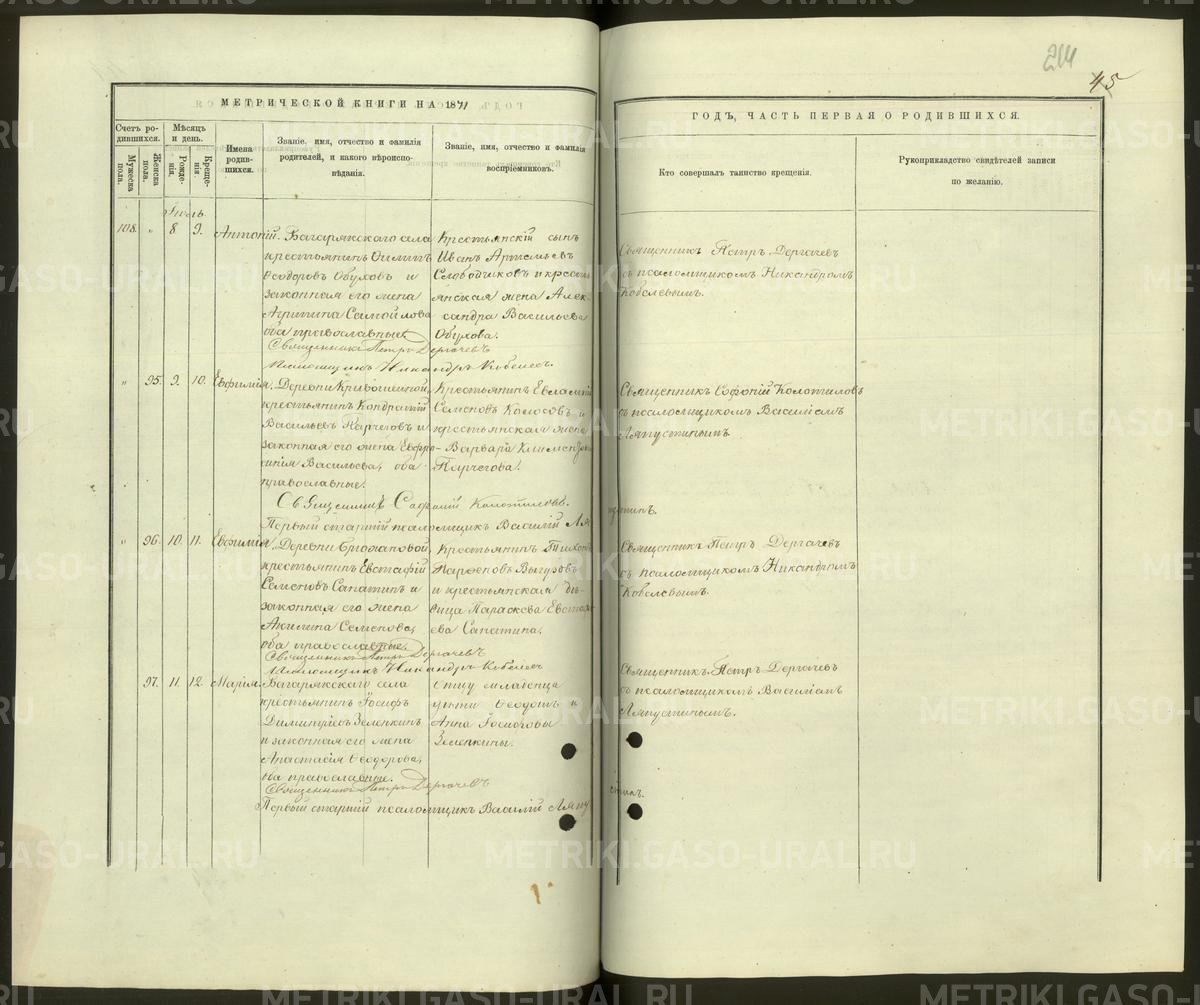 214
45
МЕТРИЧЕСКОЙ КНИГИ НА 1871
ГОДЪ, ЧАСТЬ ПЕРВАЯ О РОДИВШИХСЯ.
Счетъ родившихся.
Мужеска пола.
Женска пола.
Мѣсяцъ и день.
Рожденія.
Крещенія.
Имена родившихся.
Званіе, имя, отчество и фамилія родителей, и какого вѣроисповѣданія.
Званіе, имя, отчество и фамилія воспріемниковъ.
Кто совершалъ таинство крещенія.
Рукоприкладство свидѣтелей записи по желанію.
Іюль.
108. " 8. 9. Антоній.
Багарякскаго села
крестьянинъ Филипъ
Ѳеодоровъ Обуховъ и
законная его жена
Агрипина Самойлова
оба православные.
Крестьянскій сынъ
Иванъ Артемьевъ
Слободчиковъ и кресть-
янская жена Алек-
сандра Васильева
Обухова.
Священникъ Петръ Дергачевъ
съ псаломщикомъ Никандромъ
Кобелевымъ.
Священникъ Петръ Дергачевъ
Псаломщикъ Никандръ Кобелевъ.
" 95. 9. 10. Евфимія.
Деревни
крестьянинъ Кондратій
Васильевъ и
законная его жена Евфро-
синія Васильева, оба
православные.
Крестьянинъ Евлампій
Семеновъ Колосовъ и
крестьянская жена
Варвара
Священникъ Софоній Колотиловъ
съ псаломщикомъ Василіемъ
Ляпустинымъ.
Священникъ Софоній Колотиловъ.
Первый старшій псаломщикъ Василій Ляпустинъ.
" 96. 10. 11. Евфимія.
Деревни
крестьянинъ Евстафій
Семеновъ Сапатинъ и
законная его жена
Акилина Семенова,
оба православные.
Крестьянинъ Тихонъ
Парѳеновъ
и крестьянская дѣ-
вица Параскева Евстафі-
ева Сапатина.
Священникъ Петръ Дергачевъ
съ псаломщикомъ Никандромъ
Кобелевымъ.
Священникъ Петръ Дергачевъ
Псаломщикъ Никандръ Кобелевъ
97. 11. 12. Марія.
Багарякскаго села
крестьянинъ Іосифъ
Димитріевъ Зеленкинъ
и законная его жена
Анастасія Ѳеодорова,
оба православные.
Отцу младенца
дѣти Ѳеодотъ и
Анна Іосифовы
Зеленкины.
Священникъ Петръ Дергачевъ
съ псаломщикомъ Василіемъ
Ляпустинымъ.
Священникъ Петръ Дергачевъ
Первый старшій псаломщикъ Василій Ляпустинъ.
METRIKI.GASO-URAL.RU